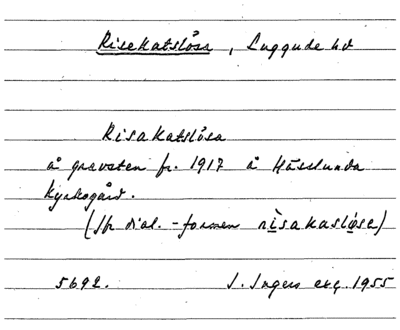 Risekatslösa, Luggude hd
Risakatslösa
å gravsten fr. 1917 å Hässlunda
kyrkogård.
(Jfr dial.-formen risakasløsa)
5692. I. Ingers exc. 1955